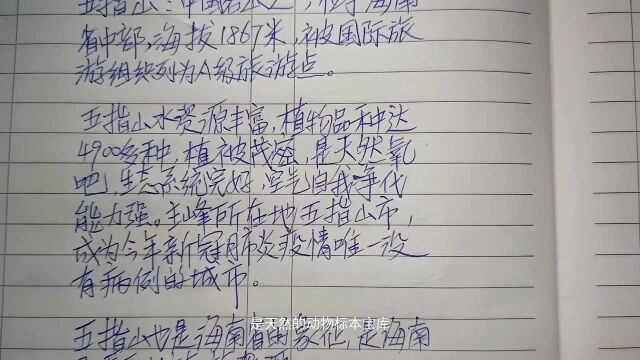 五指山：中国名山之一，位于海南
省中部，海拔1867米，被国际旅
游组织列为A级旅游点。
五指山水资源丰富，植物品种达
4900多种，植被茂密，是天然氧
吧，生态系统完好，空气自我净化
能力强。主峰所在地五指山市，
成为今年新冠肺炎疫情唯一没
有病例的城市。
是天然的动物标本宝库
五指山也是海南省的象征，是海南